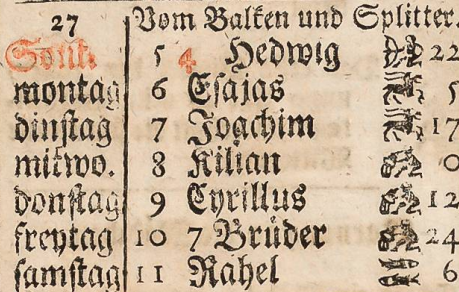 27 Vom Balken und Splitter.
Sont. 5 4 Hedwig 22
montag 6 Esajas 5
dinstag 7 Joachim 17
mitwo. 8 Kilian 0
donstag 9 Cyrillus 12
freytag 10 7 Brüder 24
samstag 11 Rahel 6